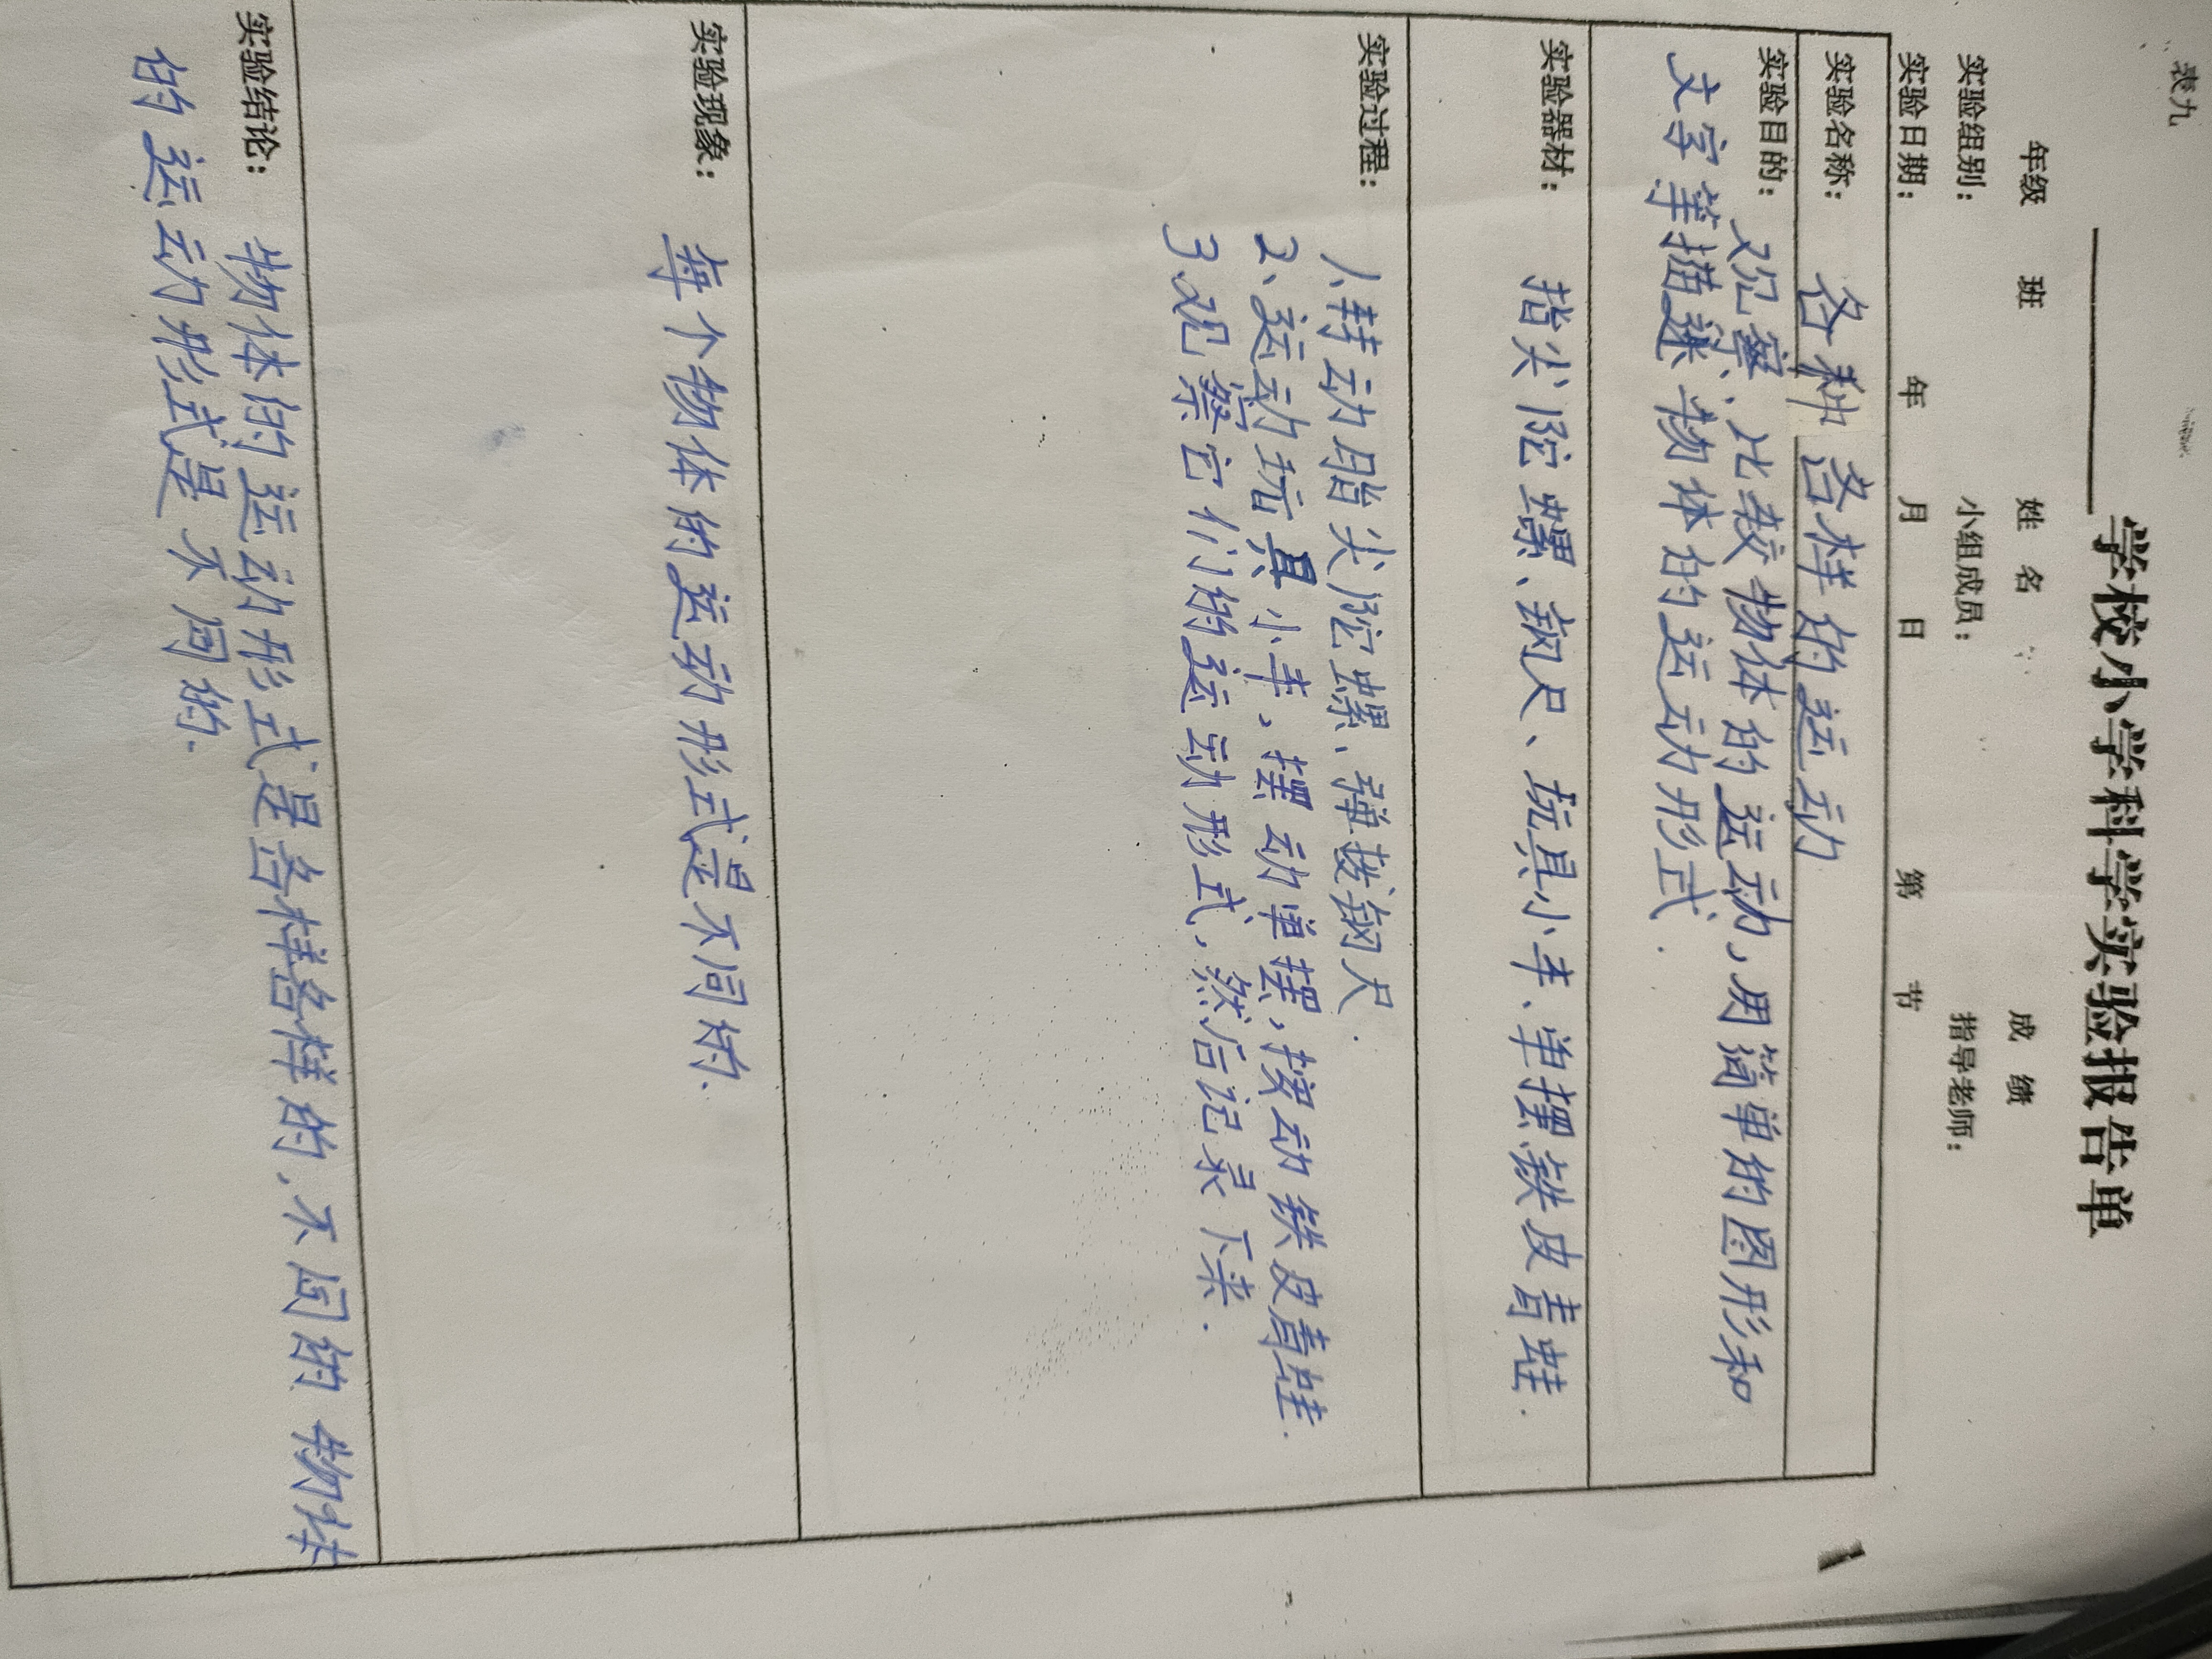 表九
学校小学科学实验报告单
年级 班 姓名 成绩
实验组别： 小组成员： 指导老师：
实验日期： 年 月 日 第 节
实验名称： 各种各样的运动
实验目的： 观察、比较物体的运动，用简单的图形和
文字等描述物体的运动形式.
实验器材： 指尖陀螺、钢尺、玩具小车、单摆铁皮青蛙.
实验过程：
1、转动指尖陀螺、弹拨钢尺.
2、运动玩具小车，摆动单摆，按动铁皮青蛙.
3观察它们的运动形式，然后记录下来.
实验现象： 每个物体的运动形式是不同的.
实验结论： 物体的运动形式是各样各样的.不同的物体
的运动形式是不同的.